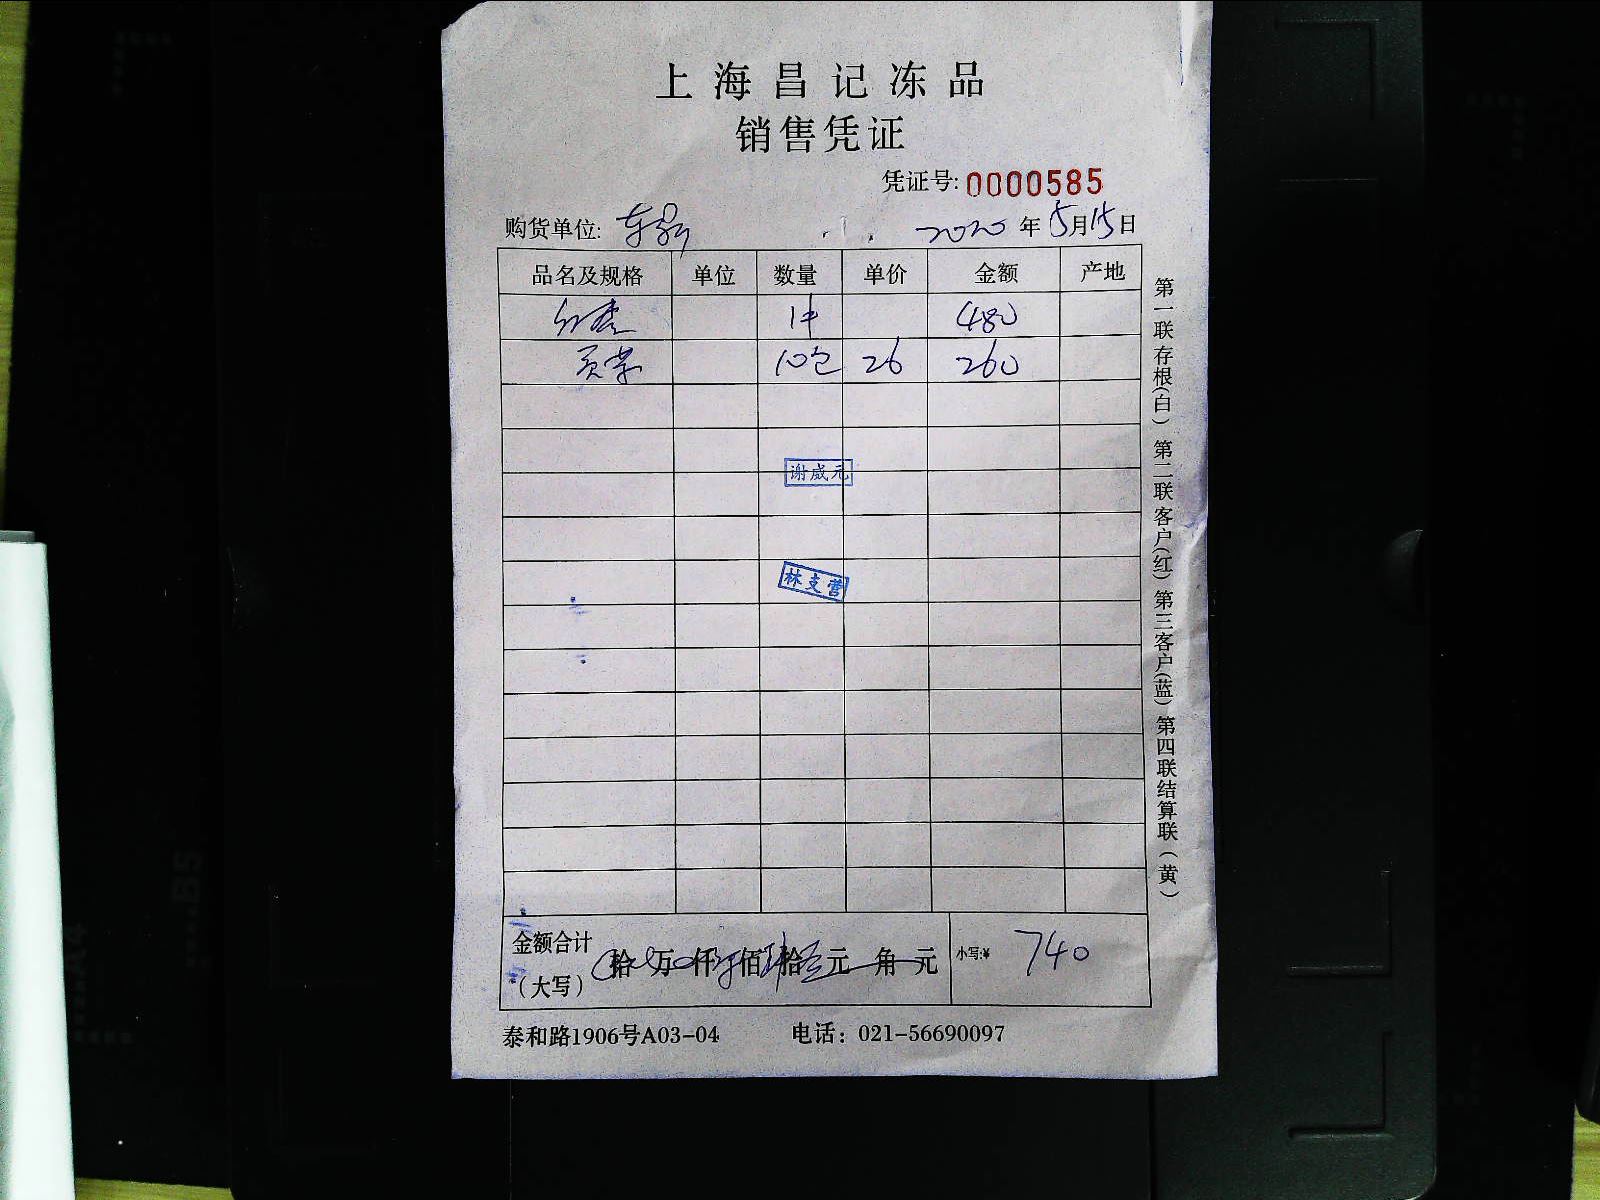 上海昌记冻品
销售凭证
凭证号: 0000585
购货单位: 2020年5月15日
品名及规格 单位 数量 单价 金额 产地
1件 480
10包 26 260
谢威元
林支营
金额合计（大写） 拾 万 仟 佰 拾 元 角 元 小写:¥ 740
泰和路1906号A03-04 电话：021-56690097
第一联存根(白) 第二联客户(红) 第三客户(蓝) 第四联结算联（黄）